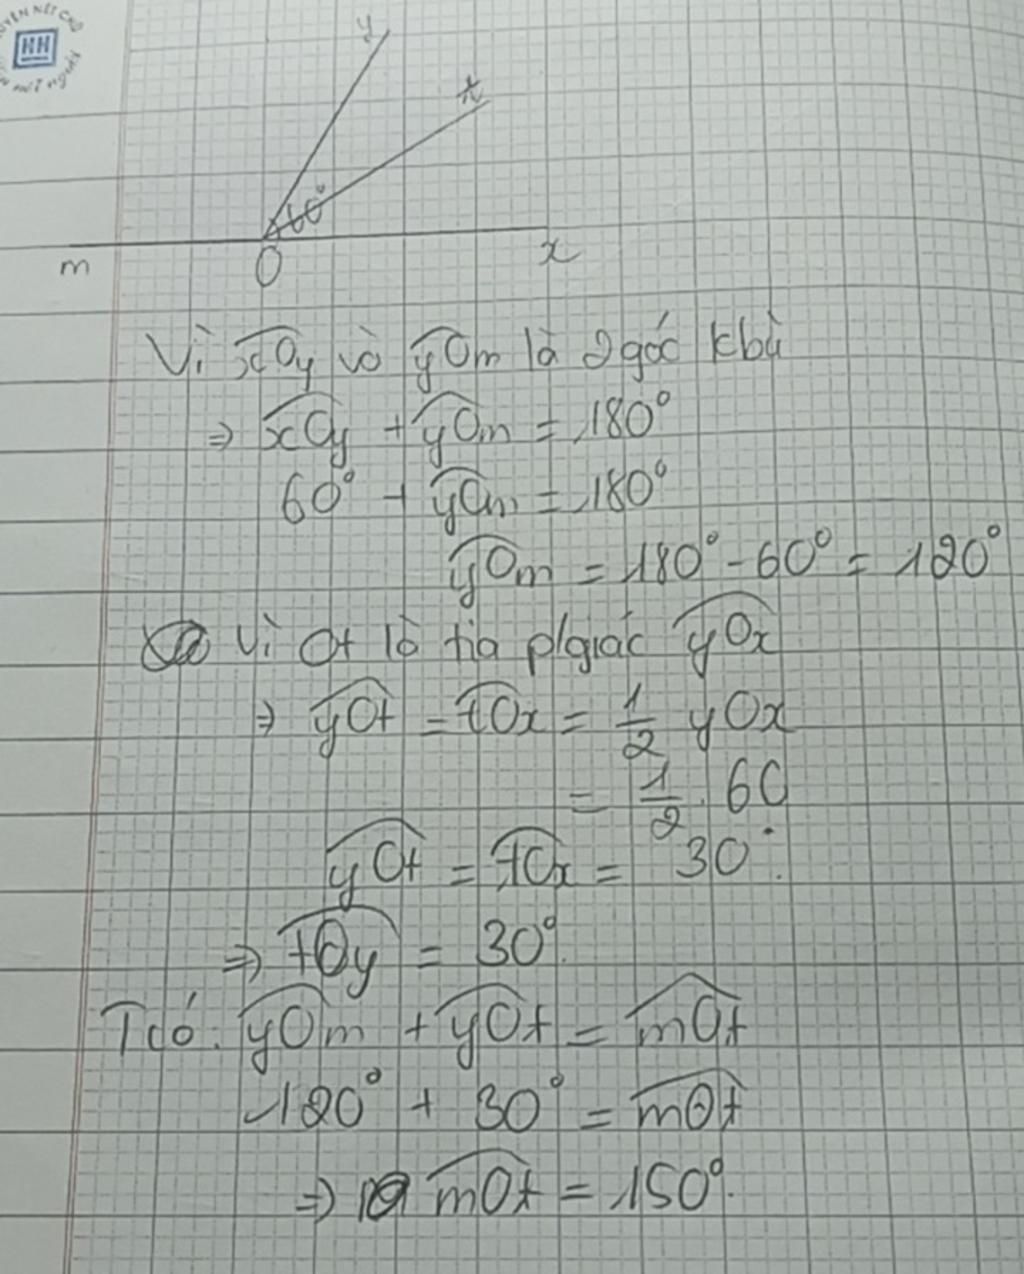 HH
y
t
60°
m
O
x
Vì xOy và yOm là 2 góc kbù
⇒ xOy + yOm = 180°
60° + yOm = 180°
yOm = 180° - 60° = 120°
Vì Ot là tia p/giác yOx
⇒ yOt = tOx = 1/2 yOx
= 1/2 . 60
yOt = tOx = 30°.
⇒ tOy = 30°.
Tcó: yOm + yOt = mOt
120° + 30° = mOt
⇒ mOt = 150°.